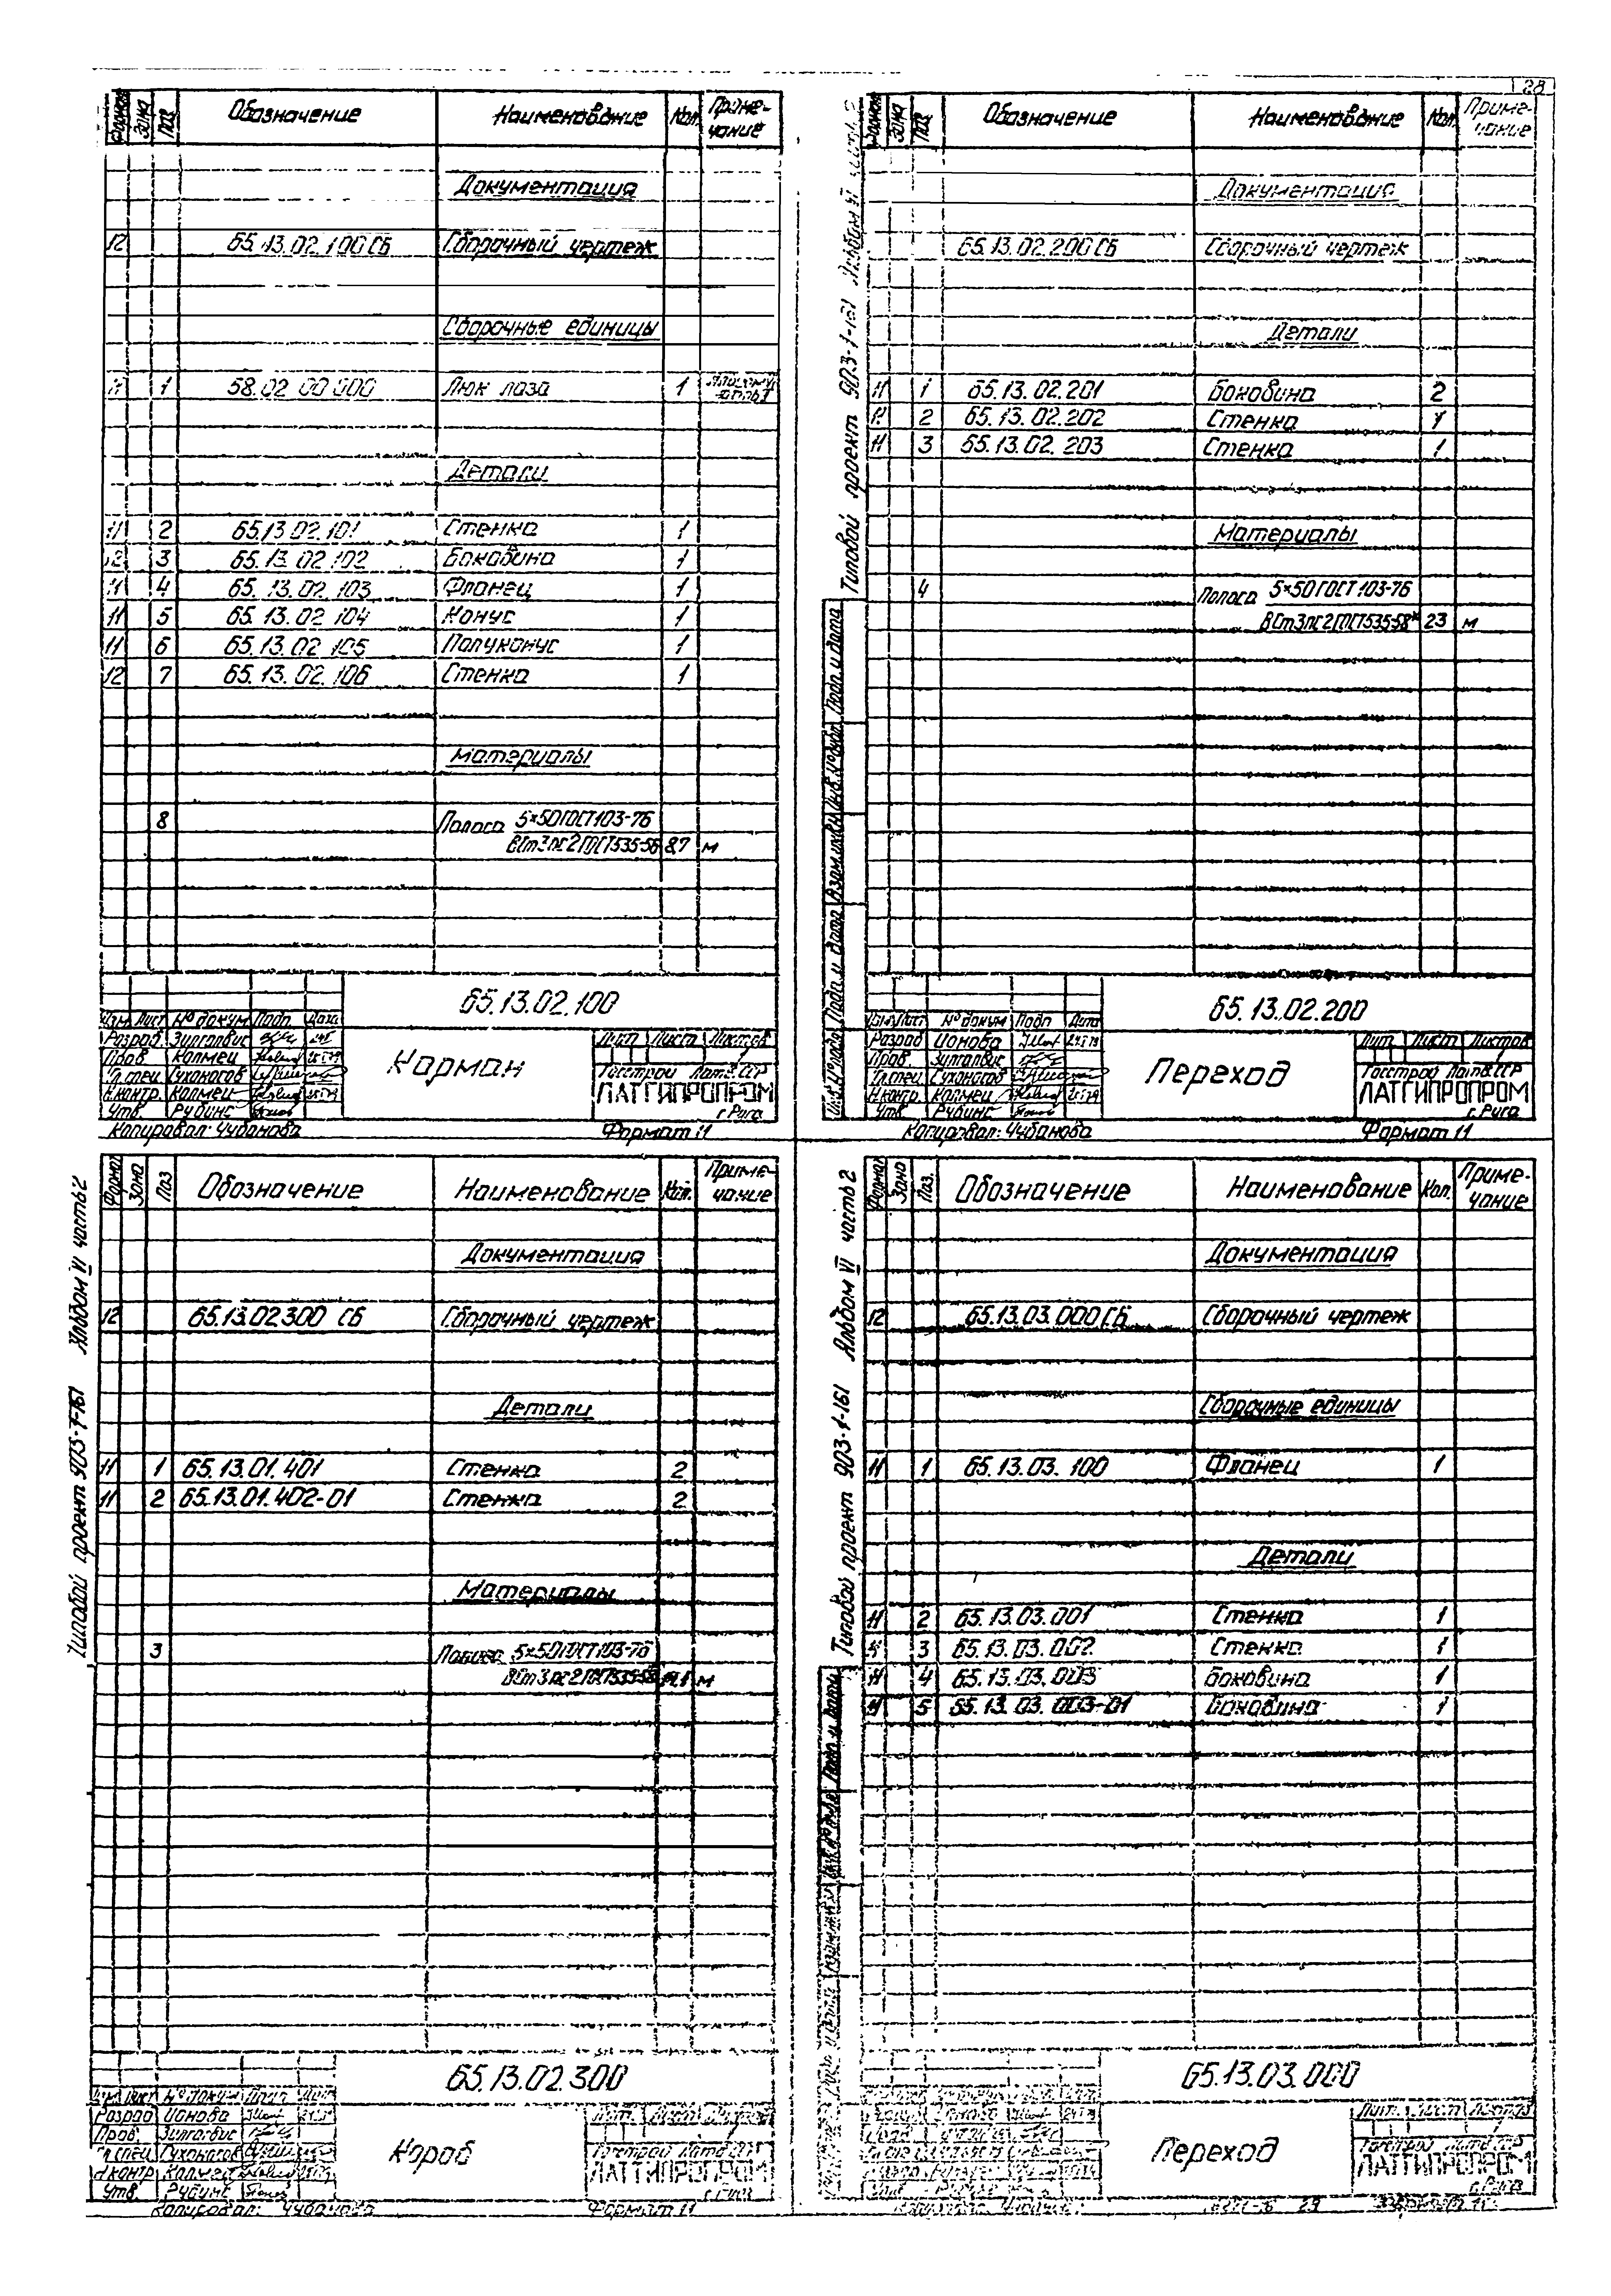 28
Формат Зона Поз. Обозначение Наименование Кол. Приме-
чание
Документация
12 65.13.02.100СБ Сборочный чертеж
Сборочные единицы
11 1 58.02.00.000 Люк лаза 1
Детали
11 2 65.13.02.101 Стенка 1
12 3 65.13.02.102 Боковина 1
11 4 65.13.02.103 Фланец 1
11 5 65.13.02.104 Конус 1
11 6 65.13.02.105 Полуконус 1
12 7 65.13.02.106 Стенка 1
Материалы
8 Полоса 5×50 ГОСТ 103-76
ВСт3пс2 ГОСТ 535-58 8,7 м
65.13.02.100
Изм. Лист № докум. Подп. Дата
Разраб. Зилгалвис
Пров. Калмец
Гл.спец. Сухоногов
Н.контр. Калмец
Утв. Рубинс
Карман
Лит. Листа Листов
1
Госстрой Латв.ССР
ЛАТГИПРОПРОМ
г.Рига
Копировал: Чубанова Формат 11
Типовой проект 903-1-161 Альбом VI часть 2
Формат Зона Поз. Обозначение Наименование Кол. Приме-
чание
Документация
65.13.02.200СБ Сборочный чертеж
Детали
11 1 65.13.02.201 Боковина 2
11 2 65.13.02.202 Стенка 1
11 3 65.13.02.203 Стенка 1
Материалы
4 Полоса 5×50 ГОСТ 103-76
ВСт3пс2 ГОСТ 535-58* 23 м
Инв.№ подл. Подп. и дата Взам.инв.№ Инв.№ дубл. Подп. и дата
65.13.02.200
Изм. Лист № докум. Подп. Дата
Разраб. Ионова
Пров. Зилгалвис
Гл.спец. Сухоногов
Н.контр. Калмец
Утв. Рубинс
Переход
Лит. Лист Листов
Госстрой Латв.ССР
ЛАТГИПРОПРОМ
г.Рига
Копировал: Чубанова Формат 11
Типовой проект 903-1-161 Альбом VI часть 2
Формат Зона Поз. Обозначение Наименование Кол. Приме-
чание
Документация
12 65.13.02.300 СБ Сборочный чертеж
Детали
11 1 65.13.01.401 Стенка 2
11 2 65.13.01.402-01 Стенка 2
Материалы
3 Полоса 5×50 ГОСТ 103-76
ВСт3пс2 ГОСТ 535-58 м
65.13.02.300
Изм. Лист № докум. Подп. Дата
Разраб. Ионова
Пров. Зилгалвис
Гл.спец. Сухоногов
Н.контр. Калмец
Утв. Рубинс
Короб
Лит. Лист Листов
Госстрой Латв.ССР
ЛАТГИПРОПРОМ
г.Рига
Копировал: Чубанова Формат 11
Типовой проект 903-1-161 Альбом VI часть 2
Формат Зона Поз. Обозначение Наименование Кол. Приме-
чание
Документация
12 65.13.03.000СБ Сборочный чертеж
Сборочные единицы
11 1 65.13.03.100 Фланец 1
Детали
11 2 65.13.03.001 Стенка 1
11 3 65.13.03.002 Стенка 1
11 4 65.13.03.003 Боковина 1
11 5 65.13.03.003-01 Боковина 1
65.13.03.000
Переход
Лит. Лист Листов
Госстрой Латв.ССР
ЛАТГИПРОПРОМ
г.Рига
29 Формат 11